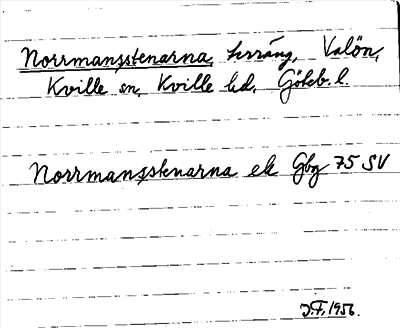 Norrmansstenarna, terräng, Valön,
Kville sn, Kville hd, Göteb. l.
Norrmansstenarna ek Gbg 75 SV
J.F. 1956.